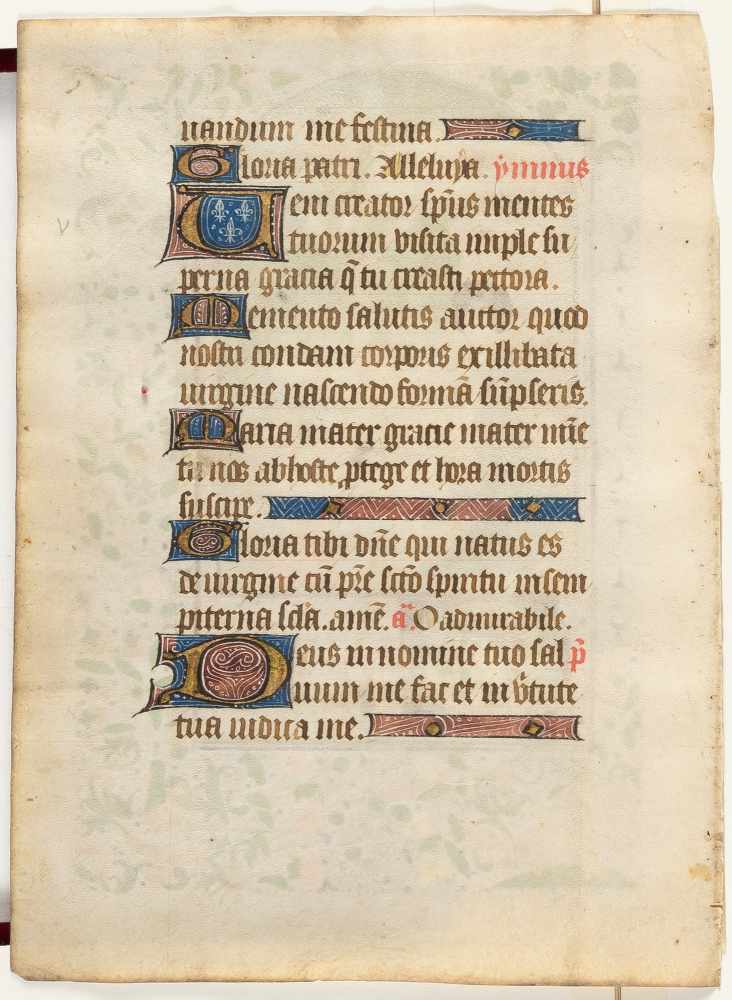 uandum me festina.
Gloria patri. Alleluya. ẏmnus
Veni creator sp̄us mentes
tuorum visita imple su
perna gracia q̄ tu creasti pectora.
Memento salutis auctor quod
nostri condam corporis ex illibata
uirgine nascendo formā sūpseris.
Maria mater gracie mater mīe
tu nos ab hoste ꝓtege et hora mortis
suscipe.
Gloria tibi dn̄e qui natus es
de uirgine cū pr̄e sc̄to spiritu in sem
piterna sc̄la. amē. a. O admirabile.
Deus in nomine tuo sal p̄
uum me fac et in v̄tute
tua iudica me.